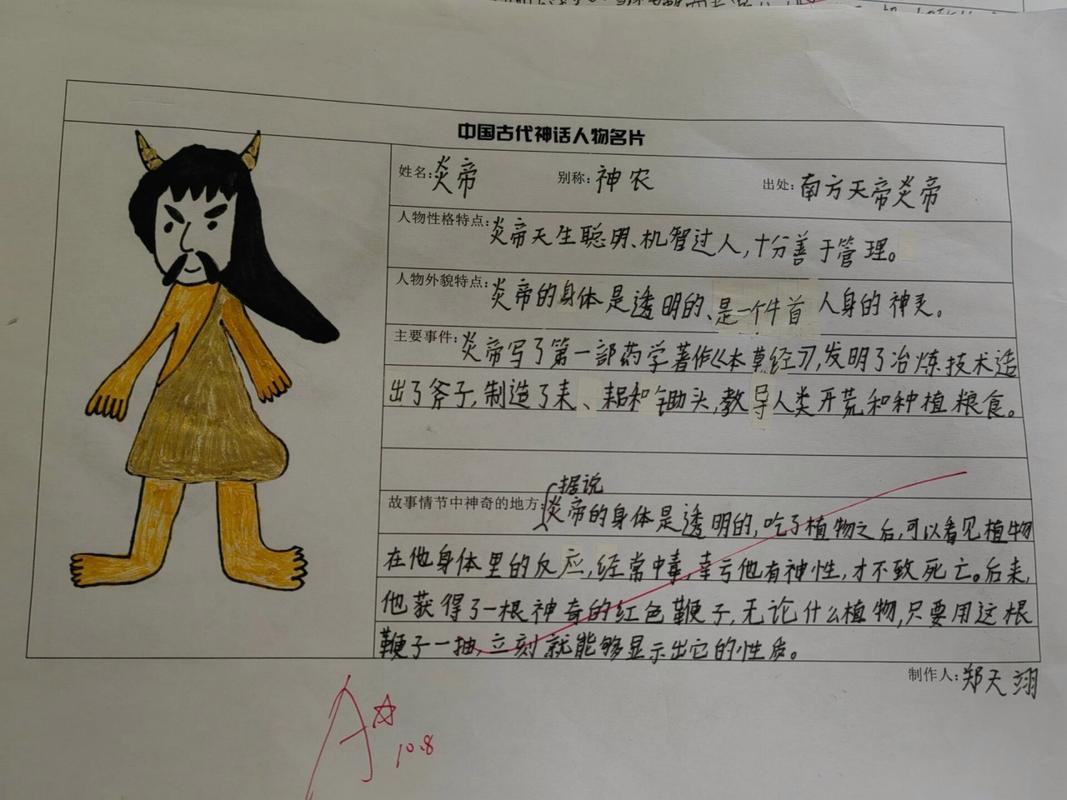 中国古代神话人物名片
姓名:炎帝 别称:神农 出处:南方天帝炎帝
人物性格特点:炎帝天生聪明、机智过人,十分善于管理。
人物外貌特点:炎帝的身体是透明的、是一个牛首人身的神灵。
主要事件:炎帝写了第一部药学著作《本草经》,发明了冶炼技术造
出了斧子,制造了耒、耜和锄头,教导人类开荒和种植粮食。
据说
故事情节中神奇的地方:炎帝的身体是透明的,吃了植物之后,可以看见植物
在他身体里的反应,经常中毒,幸亏他有神性,才不致死亡。后来,
他获得了一根神奇的红色鞭子,无论什么植物,只要用这根
鞭子一抽,立刻就能够显示出它的性质。
制作人:郑天翊
A☆
10.8